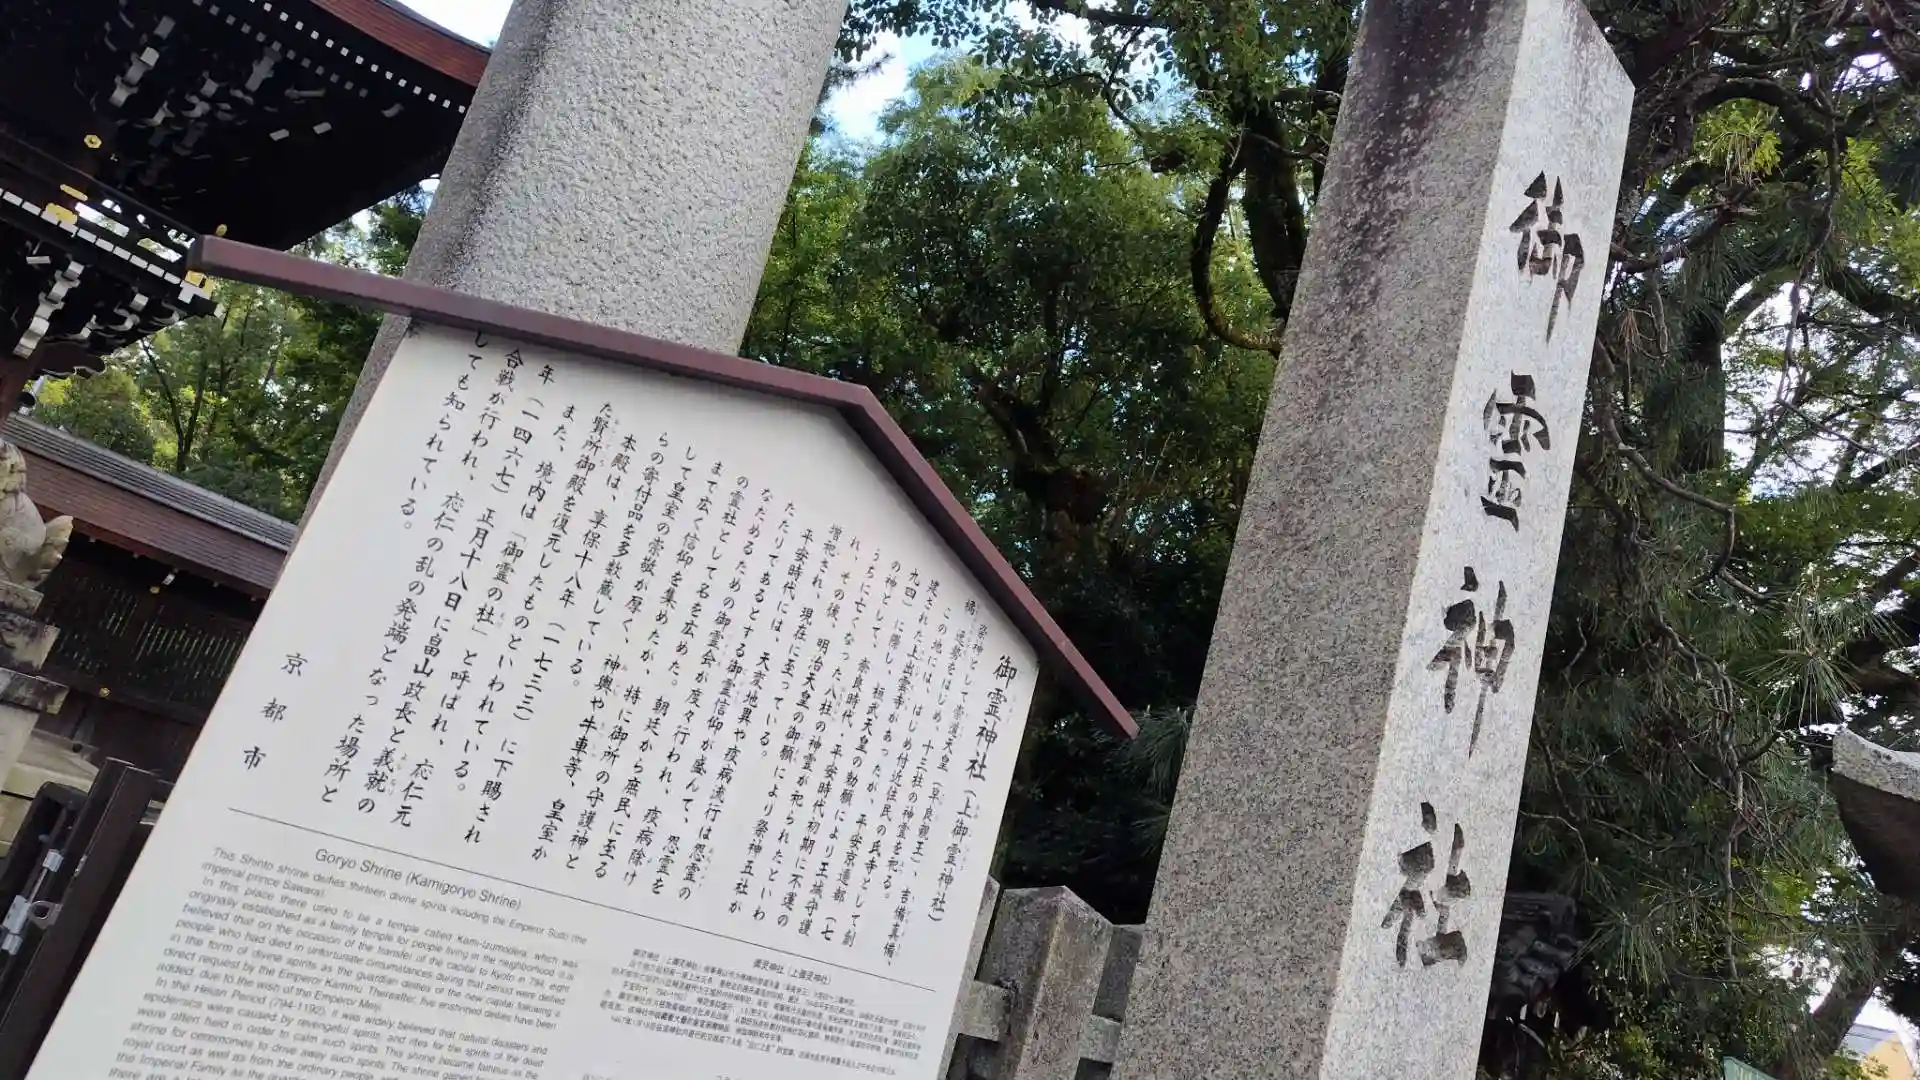 御霊神社
御霊神社(上御霊神社)
祭神として崇道天皇(早良親王)、吉備真備、
橘逸勢をはじめ、十三柱の神霊を祀る。
この地には、はじめ付近住民の氏寺として創
建された上出雲寺があったが、平安京遷都(七
九四)に際し、桓武天皇の勅願により王城守護
の神として、奈良時代、平安時代初期に不運の
うちに亡くなった八柱の神霊が祀られたといわ
れ、その後、明治天皇の御願により祭神五社が
増祀され、現在に至っている。
平安時代には、天変地異や疫病流行は怨霊の
たたりであるとする御霊信仰が盛んで、怨霊を
なだめるための御霊会が度々行われ、疫病除け
の霊社として名を広めた。朝廷から庶民に至る
まで広く信仰を集めたが、特に御所の守護神と
して皇室の崇敬が厚く、神輿や牛車等、皇室か
らの寄付品を多数蔵している。
本殿は、享保十八年(一七三三)に下賜され
た賢所御殿を復元したものといわれている。
また、境内は「御霊の杜」と呼ばれ、応仁元
年(一四六七)正月十八日に畠山政長と義就の
合戦が行われ、応仁の乱の発端となった場所と
しても知られている。
京都市
Goryo Shrine (Kamigoryo Shrine)
This Shinto shrine deifies thirteen divine spirits including the Emperor Sudo (the
imperial prince Sawara).
In this place there used to be a temple called Kami-Izumodera, which was
originally established as a family temple for people living in the neighborhood. It is
believed that on the occasion of the transfer of the capital to Kyoto in 794, eight
people who had died in unfortunate circumstances during that period were deified
in the form of divine spirits as the guardian deities of the new capital following a
direct request by the Emperor Kammu. Thereafter, five enshrined deities have been
added, due to the wish of the Emperor Meiji.
In the Heian Period (794-1192), it was widely believed that natural disasters and
epidemics were caused by revengeful spirits, and rites for the spirits of the dead
were often held in order to calm such spirits. This shrine became famous as the
shrine for ceremonies to drive away such spirits. The shrine gained
royal court as well as from the ordinary people,
the Imperial Family as the
there are a